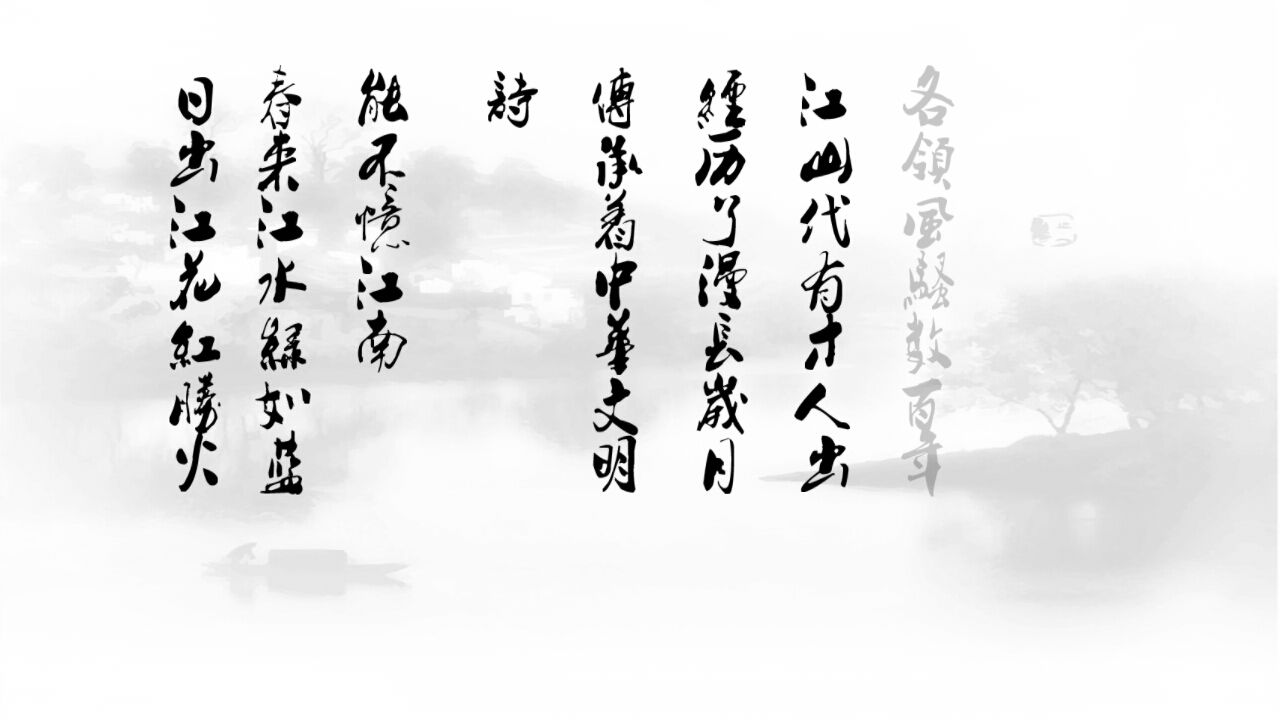 日出江花紅勝火
春来江水綠如蓝
能不憶江南
詩
傳承着中華文明
經历了漫長歲月
江山代有才人出
各領風騷数百年